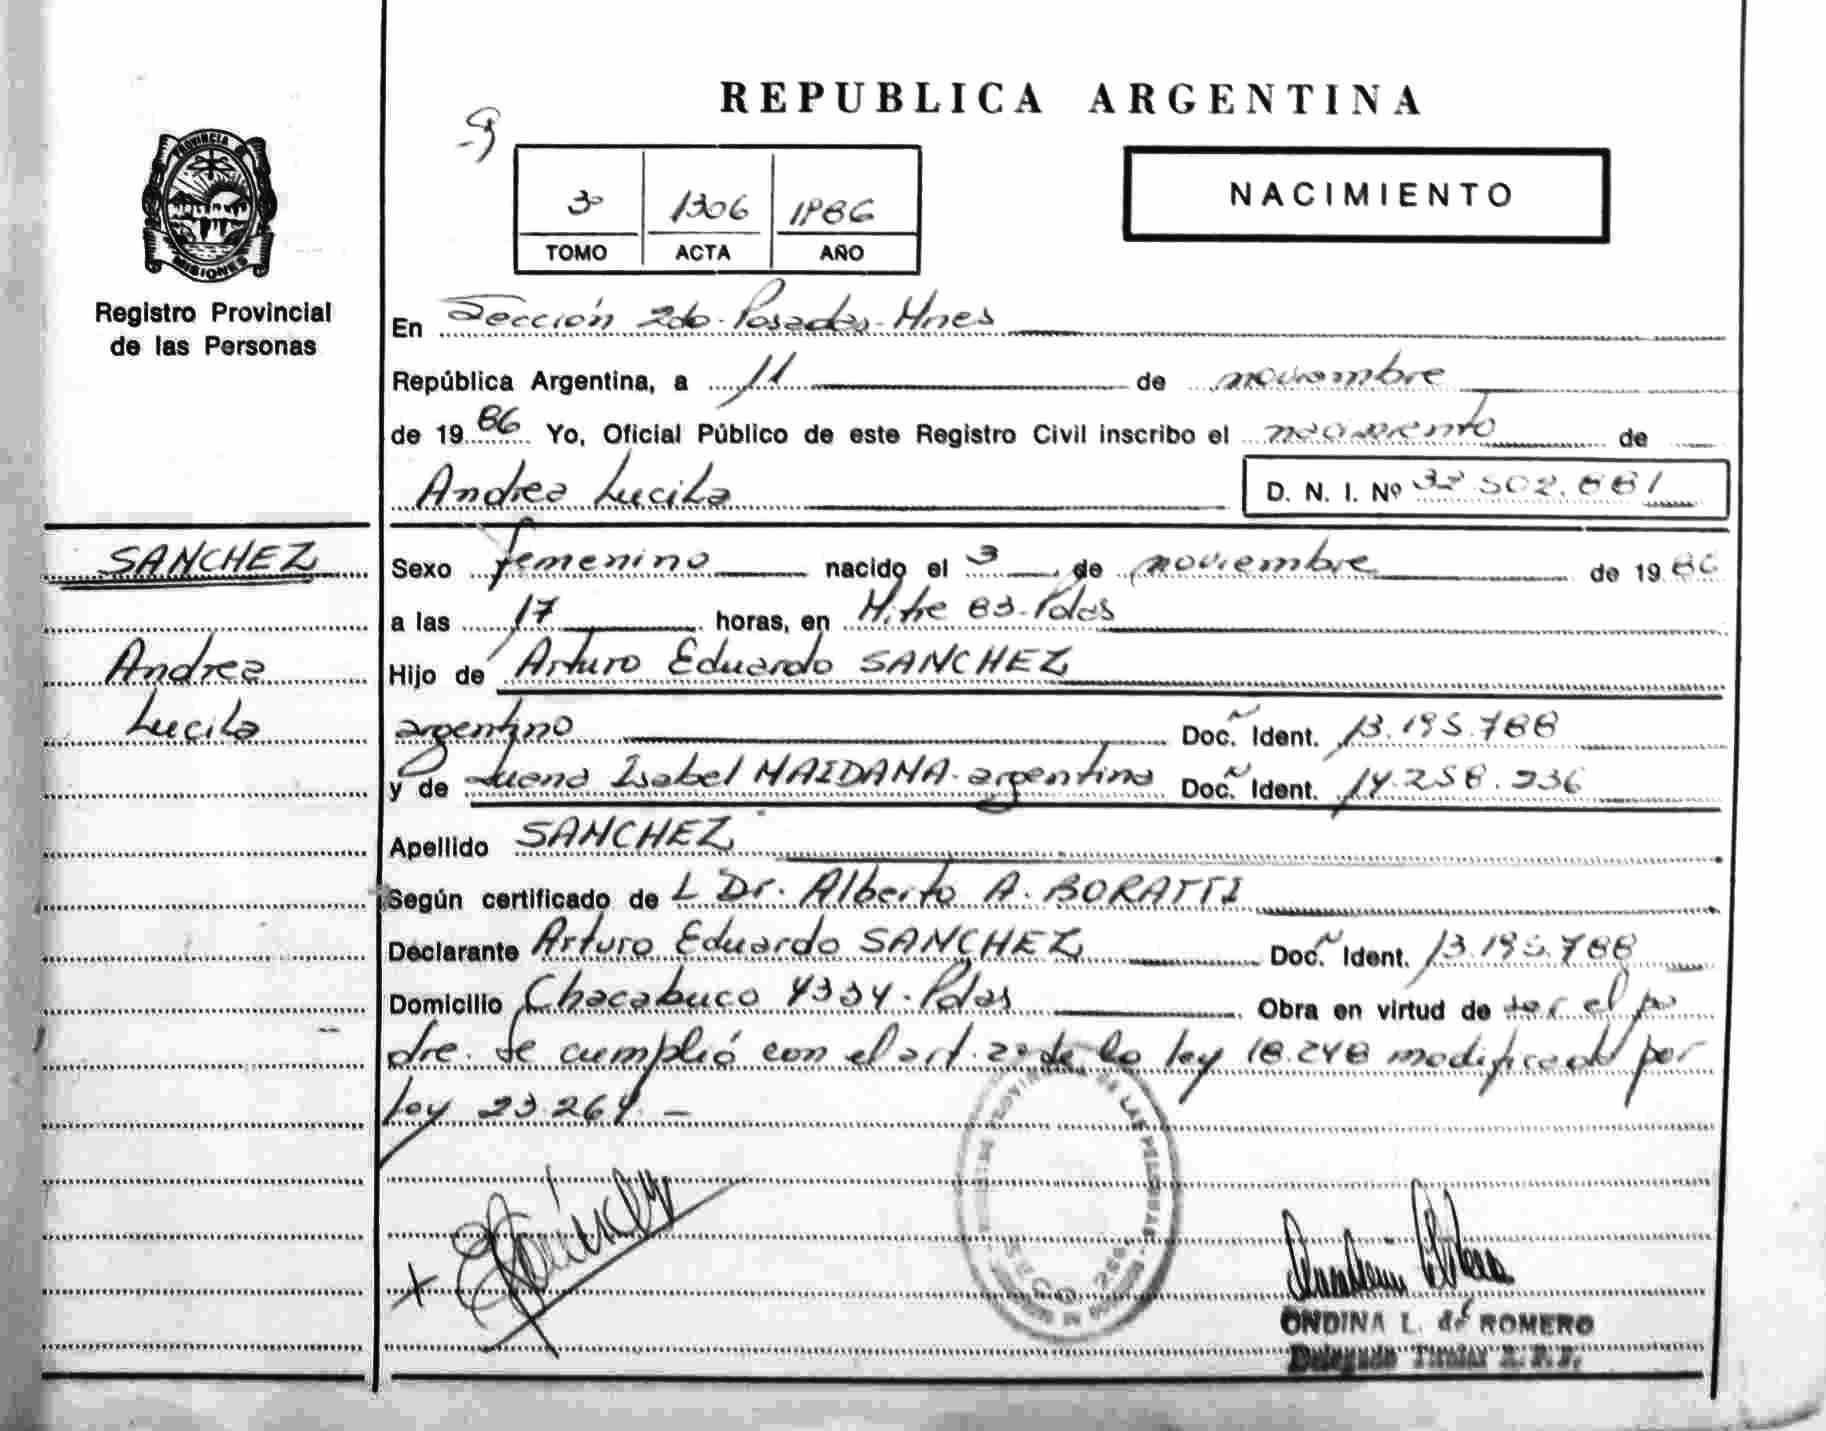 REPUBLICA ARGENTINA
PROVINCIA DE
MISIONES
Registro Provincial
de las Personas
3º 1306 1986
TOMO ACTA AÑO
NACIMIENTO
En Sección 2da-Posadas-Mnes
República Argentina, a 11 de noviembre
de 1986 Yo, Oficial Público de este Registro Civil inscribo el nacimiento de
Andrea Lucila D. N. I. Nº 32.502.881
SANCHEZ
Andrea
Lucila
Sexo femenino nacido el 3 de noviembre de 1986
a las 17 horas, en Mitre 83-Pdas
Hijo de Arturo Eduardo SANCHEZ
argentino Doc. Ident. 13.195.788
y de Isabel MAIDANA-argentina Doc. Ident. 14.258.236
Apellido SANCHEZ
Según certificado de L Dr. Alberto A. BORATTI
Declarante Arturo Eduardo SANCHEZ Doc. Ident. 13.195.788
Domicilio Chacabuco 4334-Pdas Obra en virtud de ser el pa
dre. Se cumplió con el art. 2º de la ley 18.248 modificado por
ley 23.264.-
ONDINA L. de ROMERO
Delegado Titular R. P. P.